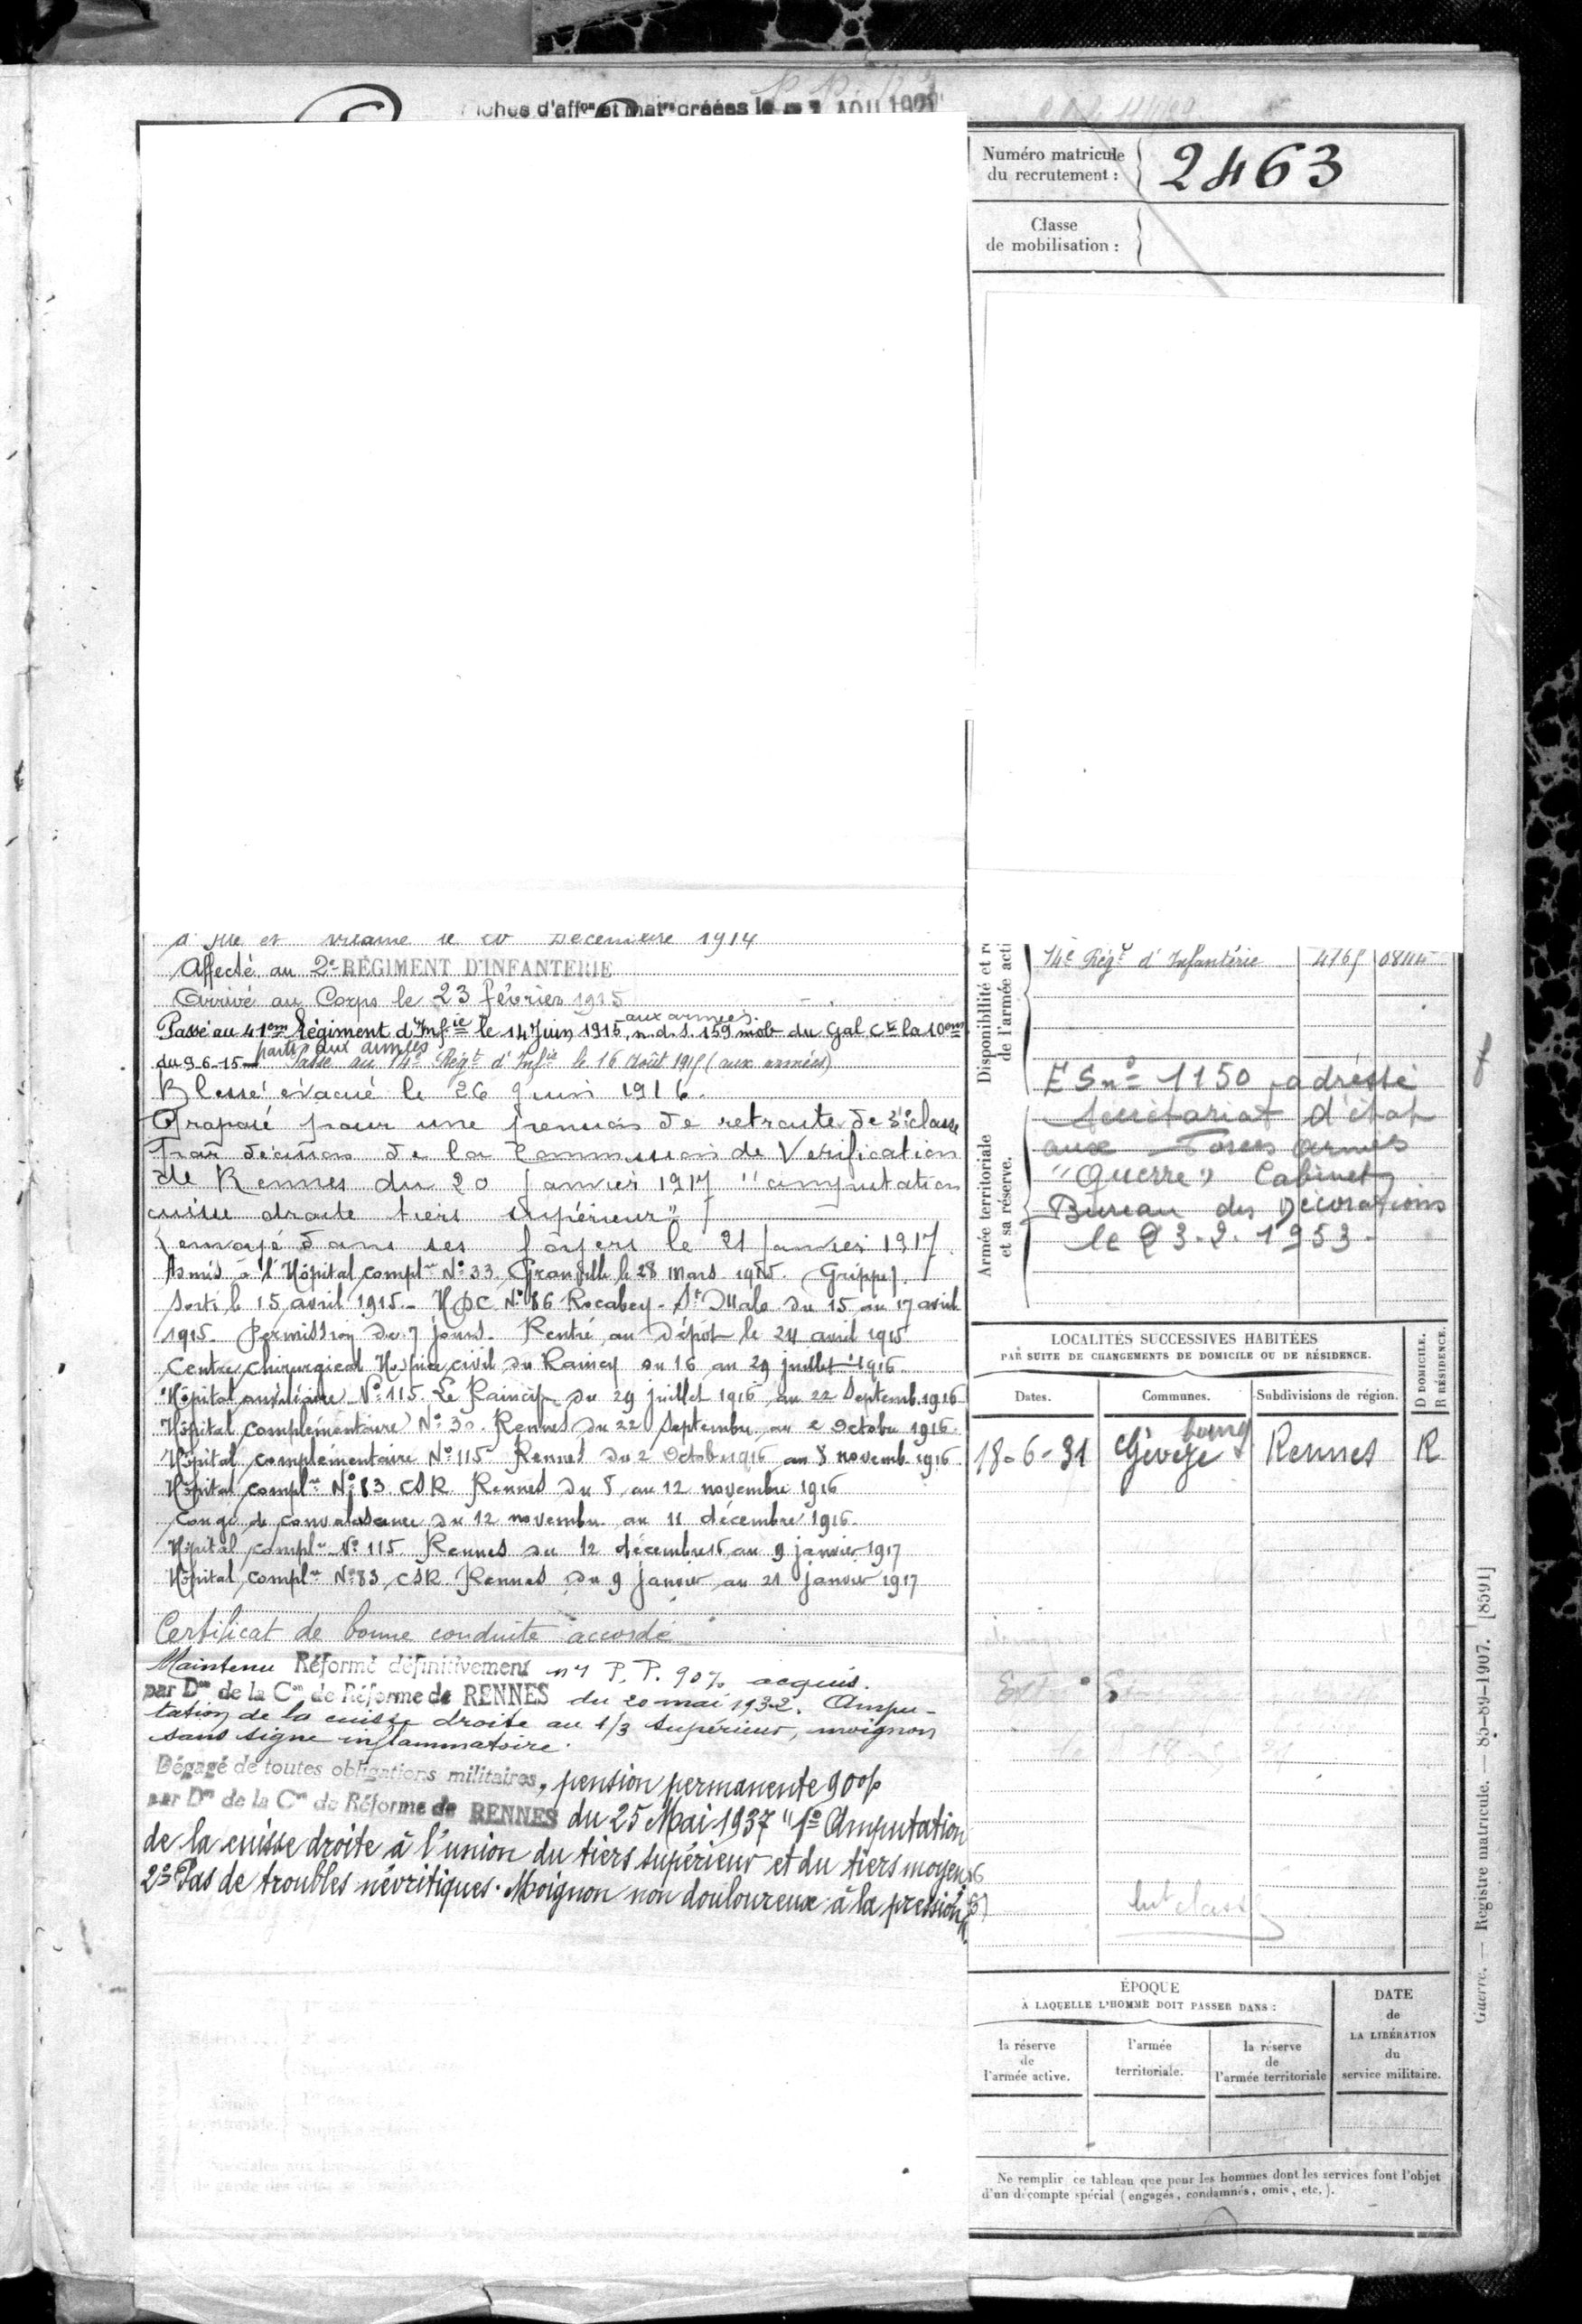 Numéro matricule
du recrutement :
2463
Classe
de mobilisation :
Décembre 1914
Affecté au 2e RÉGIMENT D'INFANTERIE
Arrivé au Corps le 23 février 1915
aux armées
Passé au 41em Régiment d'Infie le 14 Juin 1915, n.d.s. 159 mob du Gal Ct la 10em
parti aux armées
du 9-6-15 Passé au 14e Régt d'Infie le 16 Août 1915 (aux armées)
Blessé évacué le 26 Juin 1916.
Proposé pour une pension de retraite de 3e classe
Par décision de la Commission de Vérification
de Rennes du 20 Janvier 1917 "amputation
cuisse droite tiers supérieur"
Renvoyé dans ses foyers le 21 Janvier 1917.
Admis à l'Hôpital complre No 33 Granville le 28 Mars 1915. Grippe
Sorti le 15 avril 1915. No 86 Rocabey - St Malo du 15 au 17 avril
1915. Permission de 7 jours. Rentré au Dépôt le 24 avril 1915
Centre Chirurgical Hospice civil du Raincy du 16 au 29 juillet 1916.
Hôpital auxiliaire No 115. Le Raincy du 29 juillet 1916 au 22 Septemb. 1916
Hôpital complémentaire No 30. Rennes du 22 Septembre au 2 Octobre 1916.
Hôpital complémentaire No 115 Rennes du 2 Octob 1916 au 8 novemb 1916.
Hôpital complre No 83 CSR Rennes du 8 au 12 novembre 1916
Congé de convalescence du 12 novembre au 11 décembre 1916.
Hôpital complre No 115 Rennes du 12 décembre 16 au 9 janvier 1917
Hôpital complre No 83 CSR Rennes du 9 janvier au 21 janvier 1917
Certificat de bonne conduite accordé
Maintenu Réformé définitivement no 1 P. P. 90% acquis.
par Don de la Con de Réforme de RENNES du 20 mai 1932. Ampu-
tation de la cuisse droite au 1/3 supérieur, moignon
sans signe inflammatoire.
Dégagé de toutes obligations militaires, pension permanente 90%
par Don de la Con de Réforme de RENNES du 25 Mai 1937 "1o Amputation
de la cuisse droite à l'union du tiers supérieur et du tiers moyen
2o Pas de troubles névritiques. Moignon non douloureux à la pression".
Disponibilité et
de l'armée acti
14e Régt d'Infanterie
Armée territoriale
et sa réserve.
E S no 1150 adressé
Secrétariat d'état
aux Forces Armées
"Guerre" Cabinet
Bureau des Décorations
le 23-2-1953-
LOCALITÉS SUCCESSIVES HABITÉES
PAR SUITE DE CHANGEMENTS DE DOMICILE OU DE RÉSIDENCE.
D DOMICILE.
R RÉSIDENCE.
Dates. Communes. Subdivisions de région.
bourg
18-6-31 Gévezé Rennes R
ÉPOQUE
À LAQUELLE L'HOMME DOIT PASSER DANS :
DATE
de
LA LIBÉRATION
du
service militaire.
la réserve
de
l'armée active.
l'armée
territoriale.
la réserve
de
l'armée territoriale
Ne remplir ce tableau que pour les hommes dont les services font l'objet
d'un décompte spécial (engagés, condamnés, omis, etc.).
Guerre. — Registre matricule. — 85-89-1907. [8591]